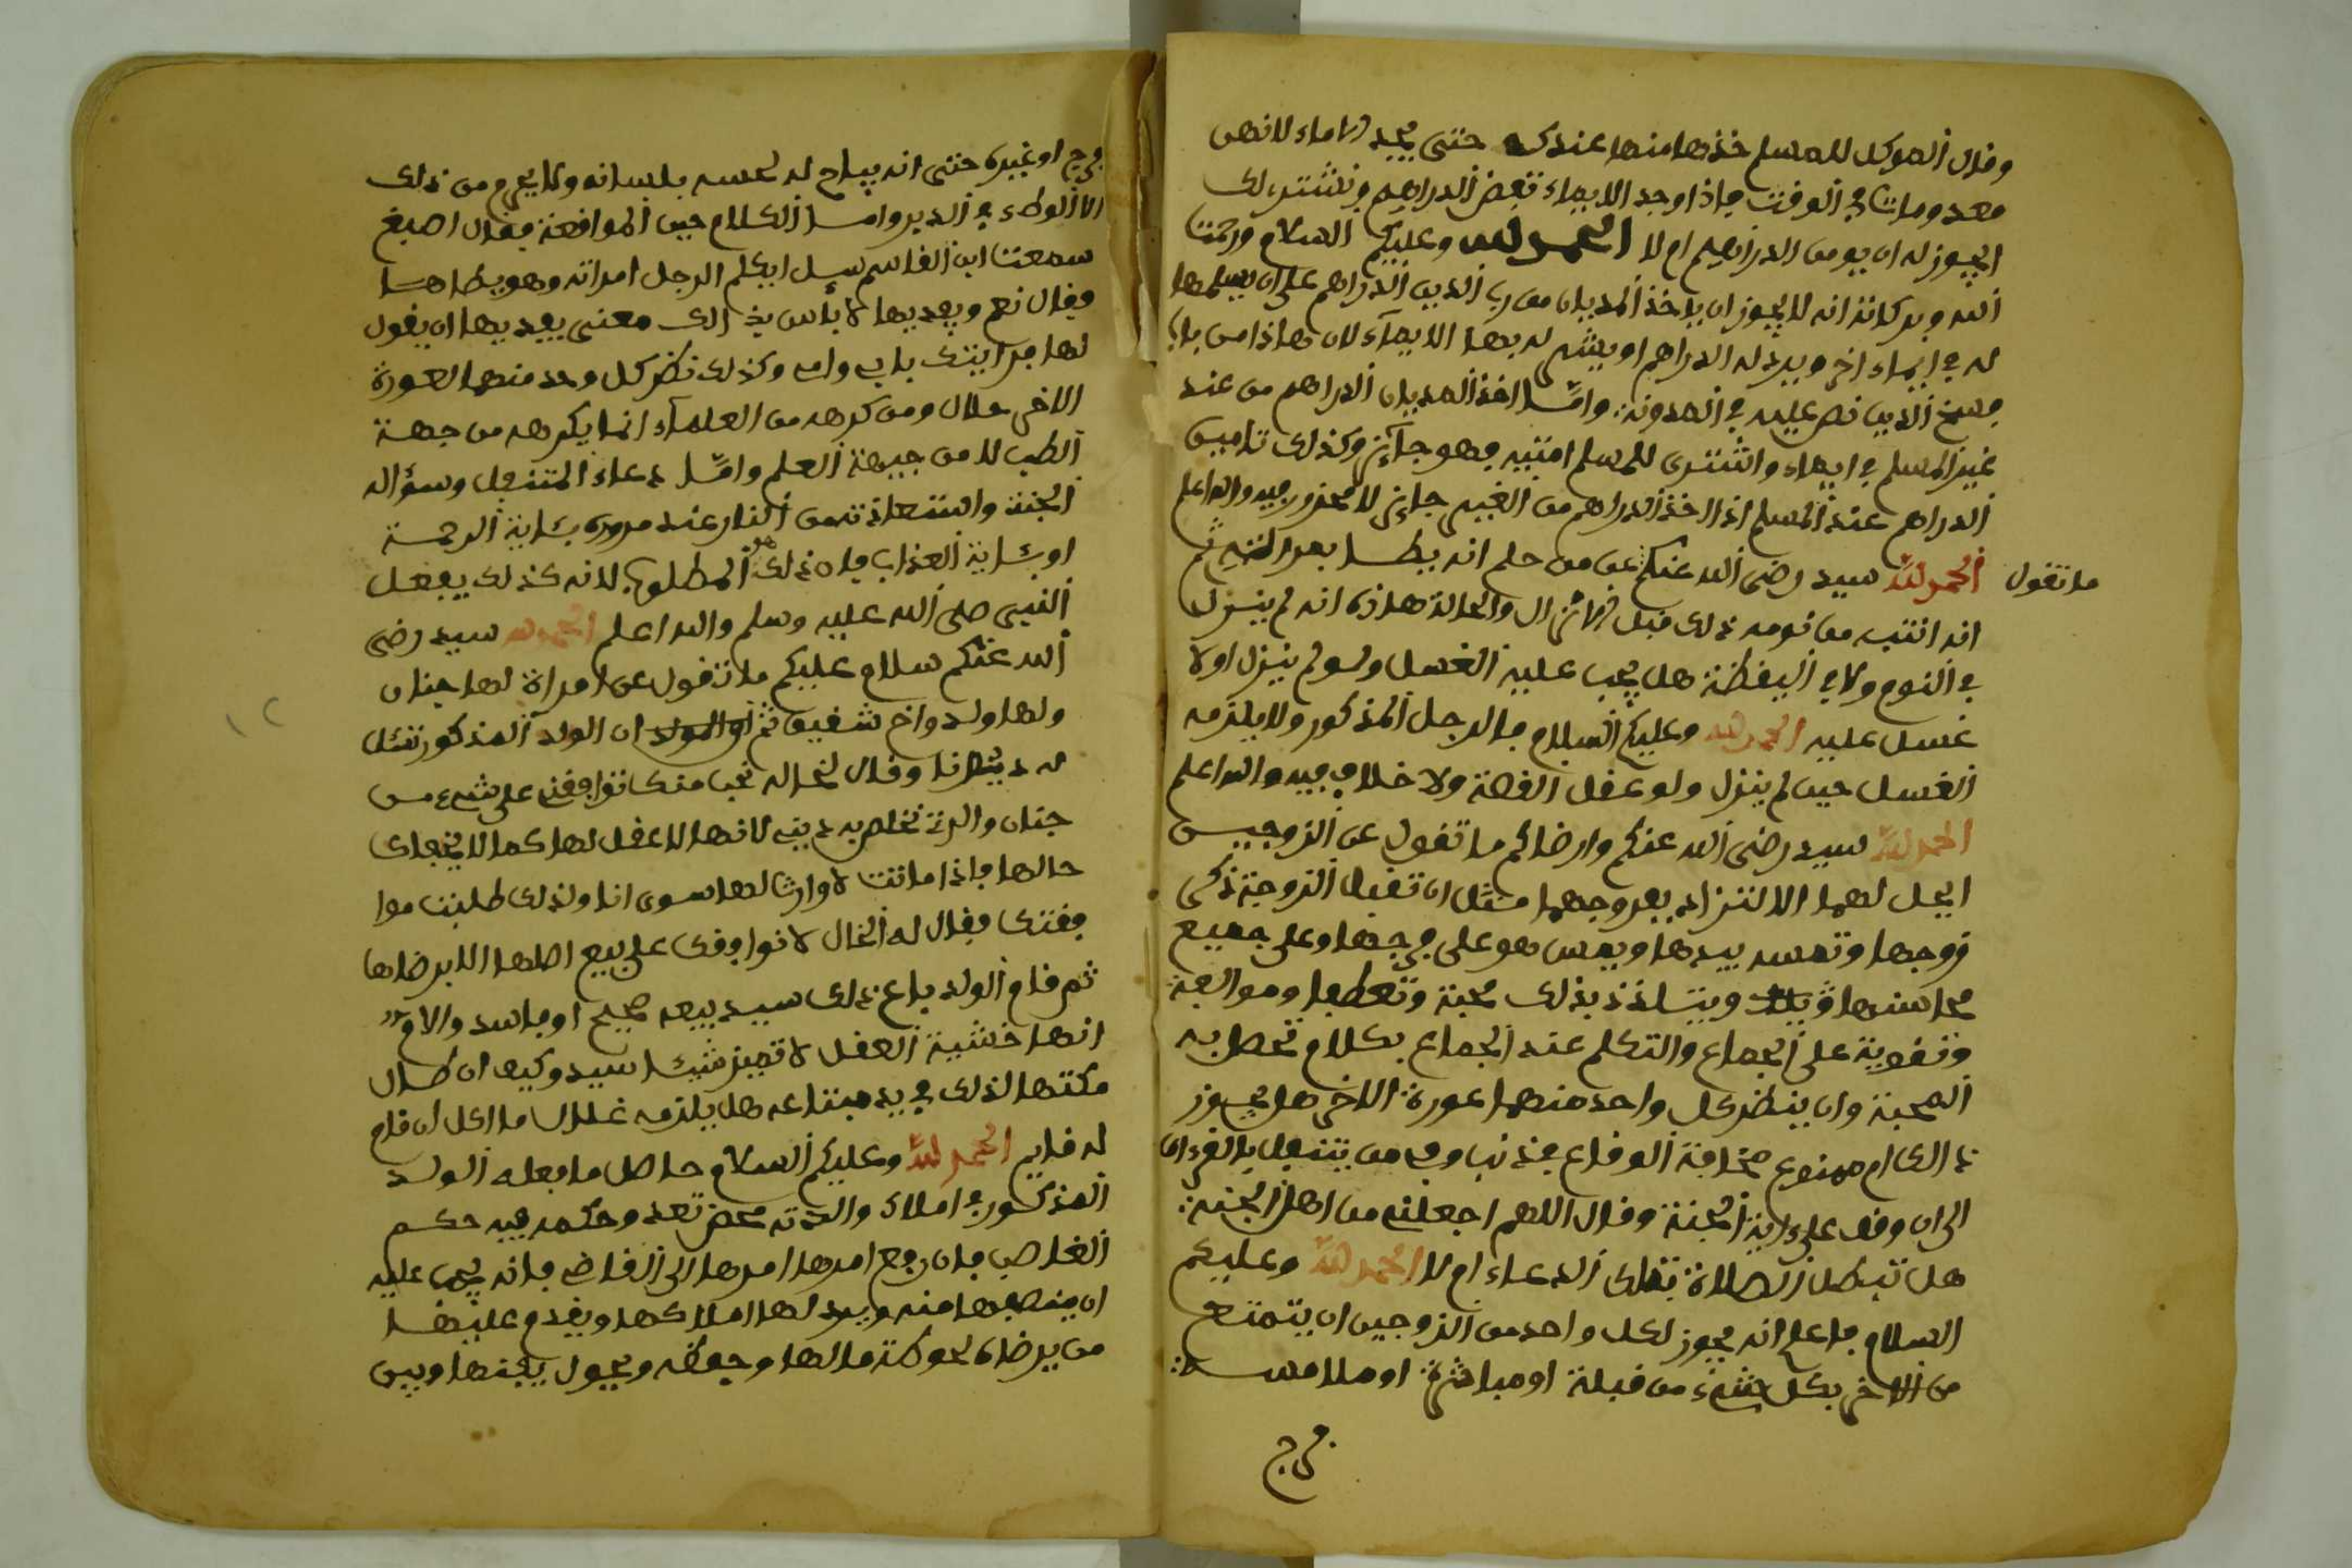 وقال الموكل للمسلم خذها منها عندك حتى يجد الاماء لانهن
معدومات في الوقت فاذا وجد الايماء تقبض الدراهم ونشتر لك
ايجوز له ان يومن الدراهم ام لا الحمد لله وعليكم السلام ورحمت
الله وبركاته انه لا يجوز ان ياخذ المديان من رب الدين الدراهم على ان يسلمها
له في ايماء اخر ويرد له الدراهم او يشتر له بها الايماء لان هذا من باب
فسخ الدين نص عليه في المدونة وامّا اخذ المديان الدراهم من عند
غير المسلم في ايماء واشترى للمسلم امتيه فهو جائز وكذلك تامين
الدراهم عند المسلم اذا اخذ الدراهم من الغير جايز لا محذور فيه والله اعلم
ما تقول
الحمد لله سيد رضى الله عنكم عن من حلم انه يطا بعد التيه ثم
انه انتبه من نومه ذلك قبل الانزال والحالة هذه انه لم ينزل
في النوم ولا في اليقظة هل يجب عليه الغسل ولو لم ينزل اولا
غسل عليه الحمد لله وعليكم السلام فالرجل المذكور ولا يلزمه
الغسل حين لم ينزل ولو عقل القصة ولا خلاف فيه والله اعلم
الحمد لله سيد رضى الله عنكم وارضاكم ما تقول عن الزوجين
ايحل لهما الالتزاد بفروجهما مثل ان تقبل الزوجة ذكر
زوجها وتمسه بيدها ويمس هو على فرجها وعلى جميع
محاسنها ويتلذذ بذلك محبة وتعطفا وموالفة
وتقوية على الجماع والتكلم عند الجماع بكلام تحصل به
المحبة وان ينظر كل واحد منهما عورة الاخر هل يجوز
ذالك ام ممنوع مخافة الوقاع في ذنب وفي من يتنفل بالقرءان
الى ان وقف على اية الجنة وقال اللهم اجعلني من اهل الجنة
هل تبطل الصلاة بتلك الدعاء ام لا الحمد لله وعليكم
السلام فاعلم انه يجوز لكل واحد من الزوجين ان يتمتع
من الاخر بكل شيء من قبلة او مباشرة او ملامسة
فرج
فرج او غيره حتى انه يباح له لحسه بلسانه ولا يحرم من ذلك
الا الوطء في الدبر وامّا الكلام حين المواقعة فقال اصبغ
سمعت ابن القاسم سيل ايكلم الرجل امراته وهو يطاها
فقال نعم ويفديها لا بأس بذالك معنى يفديها ان يقول
لها فدايتك بابي وامي وكذلك نظر كل واحد منهما لعورة
الاخر حلال ومن كرهه من العلماء انما يكرهه من جهة
الطب لا من جيهة العلم وامّا دعاء المتنفل وسؤاله
الجنة واستعاذته من النار عند مروره بئاية الرحمة
او بئاية العذاب فان ذلك هو المطلوب لانه كذلك يفعل
النبي صلى الله عليه وسلم والله اعلم الحمد لله سيد رضى
الله عنكم سلام عليكم ما تقول عن امراة لها جنان
ولها ولد واخ شقيق ثم ان الولد المذكور تسل
له دينا وقال لخاله نحب منك توافقني على شيء من
جنان والدت نخلص به ديني لانها لا عقل لها كما لا يخفاك
حالها فاذا ماتت لا وارث لها سوى انا ولذلك طلبت موا
فقتك فقال له الخال لا نوافقك على بيع اصلها الا برضاها
ثم قام الولد باع ذلك سيد بيعه صحيح او فاسد والام
انها خشية العقل لا تميز شيئا سيد وكيف ان طال
مكثها لذلك في يد مبتاعه هل يلزمه غلال ما اكل ان قام
له قايم الحمد لله وعليكم السلام حاصل ما فعله الولد
المذكور في املاك والدته محض تعد وحكمه فيه حكم
الغاصب فان رفع امرها امرها الى القاضي فانه يجب عليه
ان ينصفها منه ويرد لها املاكها ويقدم عليها
من يرضاه لحوكة مالها وحفظه ويحول بينها وبين